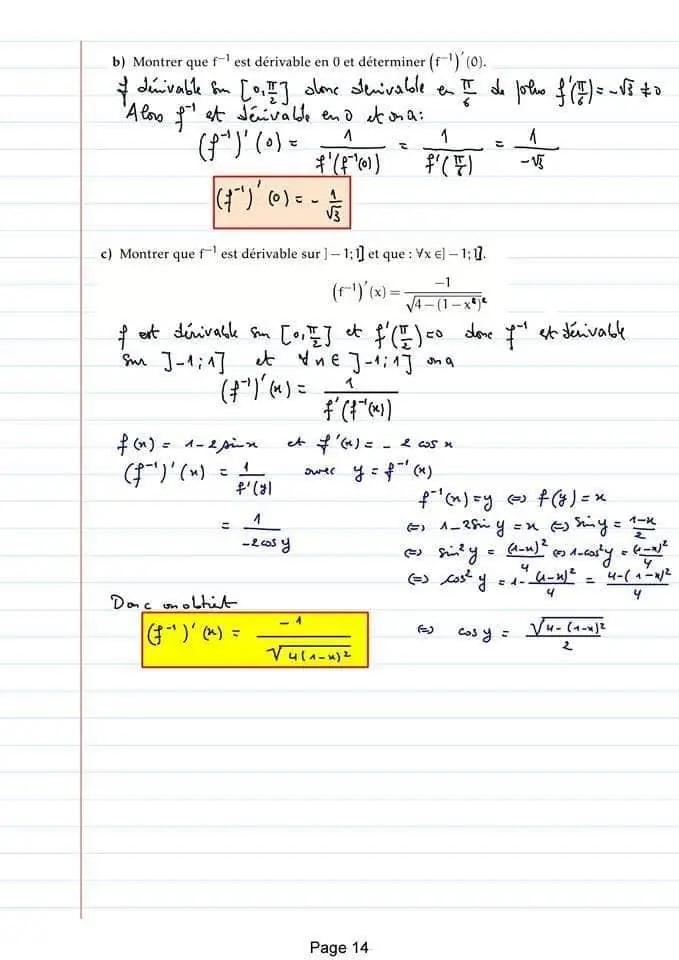 b) Montrer que f⁻¹ est dérivable en 0 et déterminer (f⁻¹)′(0).
f dérivable sur [0,π/2] donc dérivable en π/6 de plus f'(π/6) = -√3 ≠ 0
Alors f⁻¹ est dérivable en 0 et on a:
(f⁻¹)'(0) = 1/f'(f⁻¹(0)) = 1/f'(π/6) = 1/-√3
(f⁻¹)'(0) = - 1/√3
c) Montrer que f⁻¹ est dérivable sur ]−1;1] et que : ∀x ∈]−1;1].
(f⁻¹)′(x) = −1/√4−(1−x²)²
f est dérivable sur [0,π/2] et f'(π/2)=0 donc f⁻¹ est dérivable
sur ]-1;1] et ∀x ∈ ]-1;1] on a
(f⁻¹)'(x) = 1/f'(f⁻¹(x))
f(x) = 1-2sin x et f'(x) = -2cos x
(f⁻¹)'(x) = 1/f'(y) avec y = f⁻¹(x)
= 1/-2cos y
f⁻¹(x)=y ⇔ f(y)=x
⇔ 1-2sin y = x ⇔ sin y = 1-x/2
⇔ sin²y = (1-x)²/4 ⇔ 1-cos²y = (1-x)²/4
⇔ cos²y = 1-(1-x)²/4 = 4-(1-x)²/4
⇔ cos y = √4-(1-x)²/2
Donc on obtient
(f⁻¹)'(x) = -1/√4(1-x)²
Page 14